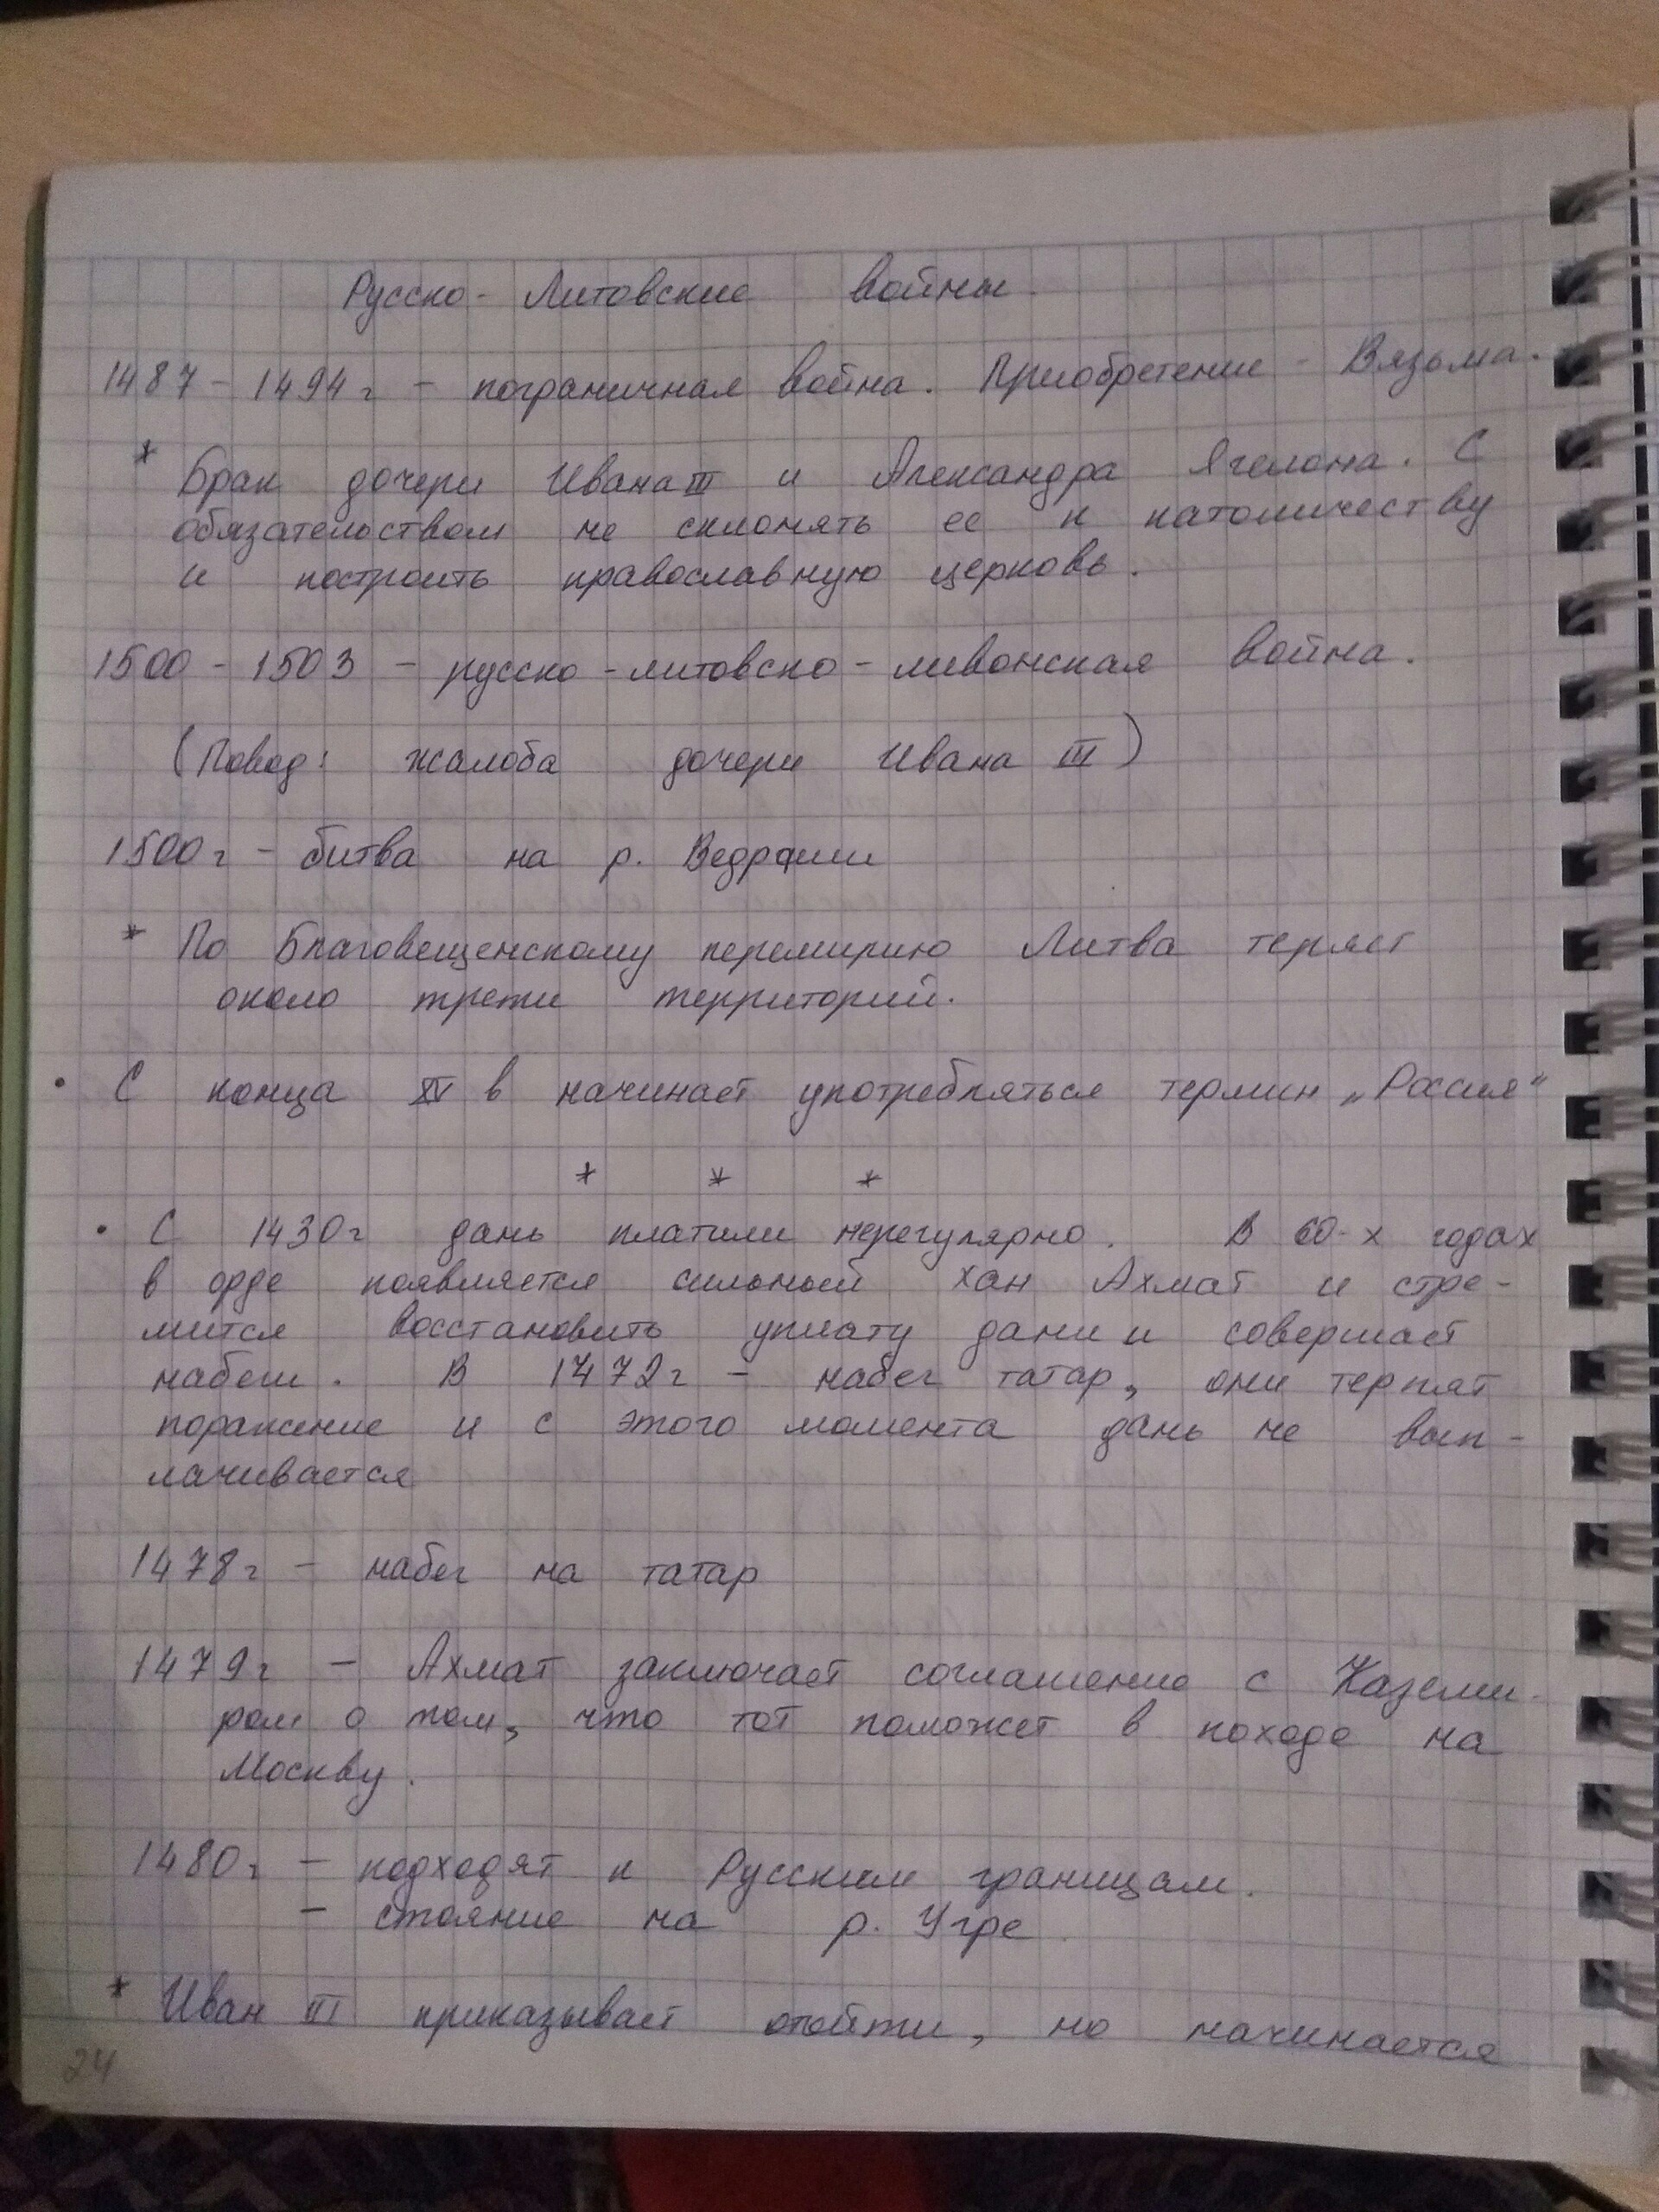 Русско-Литовские войны
1487-1494г - пограничная война. Приобретение - Вязьма.
* Брак дочери Ивана III и Александра Ягелона. С
обязательством не склонять ее к католичеству
и построить православную церковь.
1500-1503 - русско-литовско-ливонская война.
(Повод: жалоба дочери Ивана III)
1500г - битва на р. Ведроши
* По Благовещенскому перемирию Литва теряет
около трети территорий.
• С конца XV в начинает употребляться термин „Россия“
* * *
• С 1430г дань платили нерегулярно. В 60-х годах
в орде появляется сильный хан Ахмат и стре-
мится восстановить уплату дани и совершает
набеги. В 1472г - набег татар, они терпят
поражение и с этого момента дань не вып-
лачивается
1478г - набег на татар
1479г - Ахмат заключает соглашение с Казими-
ром о том, что тот поможет в походе на
Москву.
1480г - подходят к Русским границам.
- стояние на р. Угре
* Иван III приказывает отойти, но начинается
24